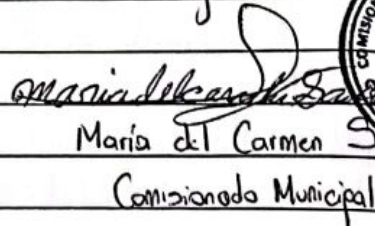 COMISION
Maria del Carmen
María del Carmen S
Comisionado Municipal